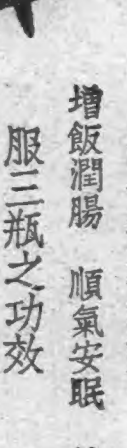 增飯潤腸　順氣安眠
服三瓶之功效